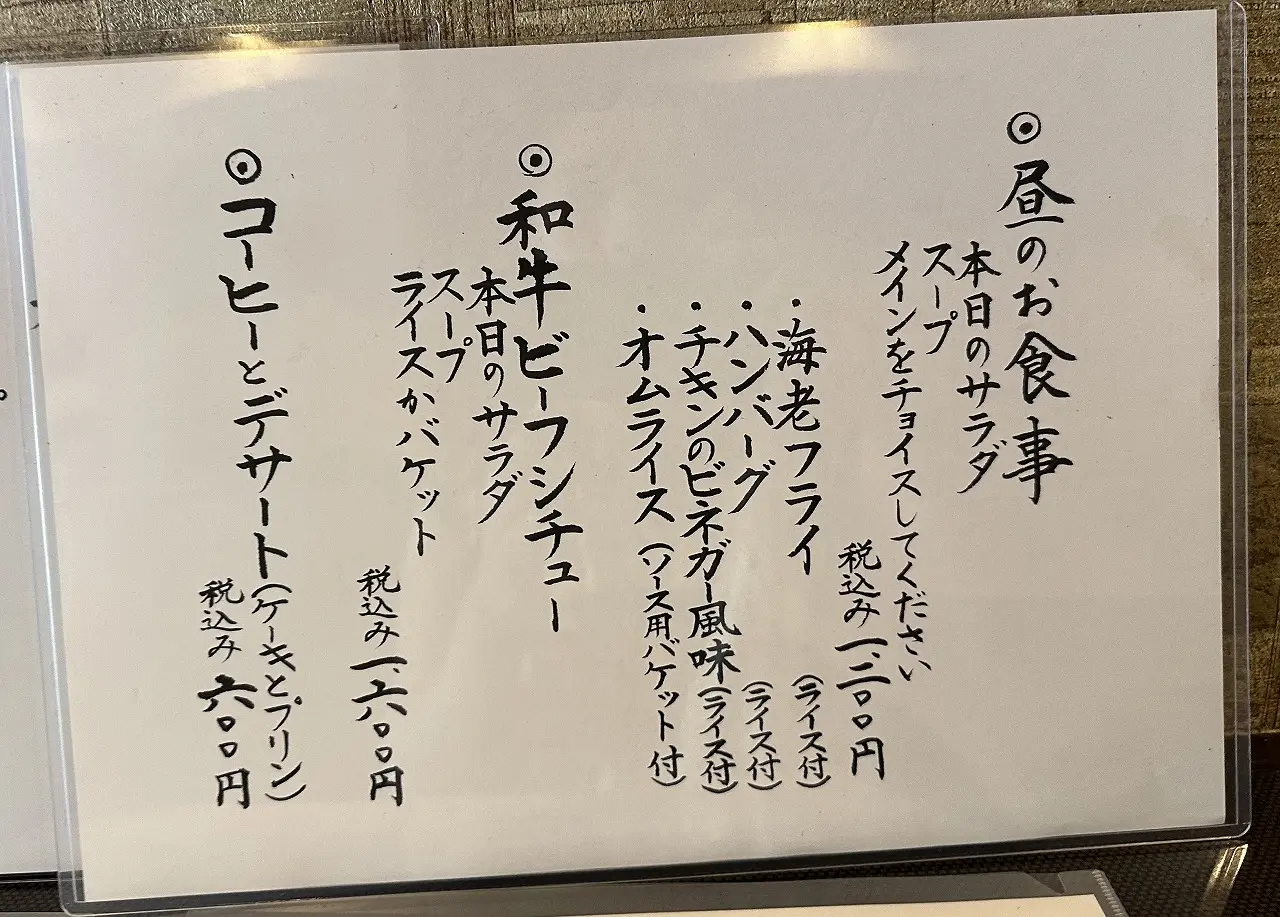 ◉昼のお食事
本日のサラダ
スープ
メインをチョイスしてください
税込み一、二〇〇円
・海老フライ(ライス付)
・ハンバーグ(ライス付)
・チキンのビネガー風味(ライス付)
・オムライス(ソース用バケット付)
◉和牛ビーフシチュー
本日のサラダ
スープ
ライスかバケット
税込み一、六〇〇円
◉コーヒーとデザート(ケーキとプリン)
税込み六〇〇円